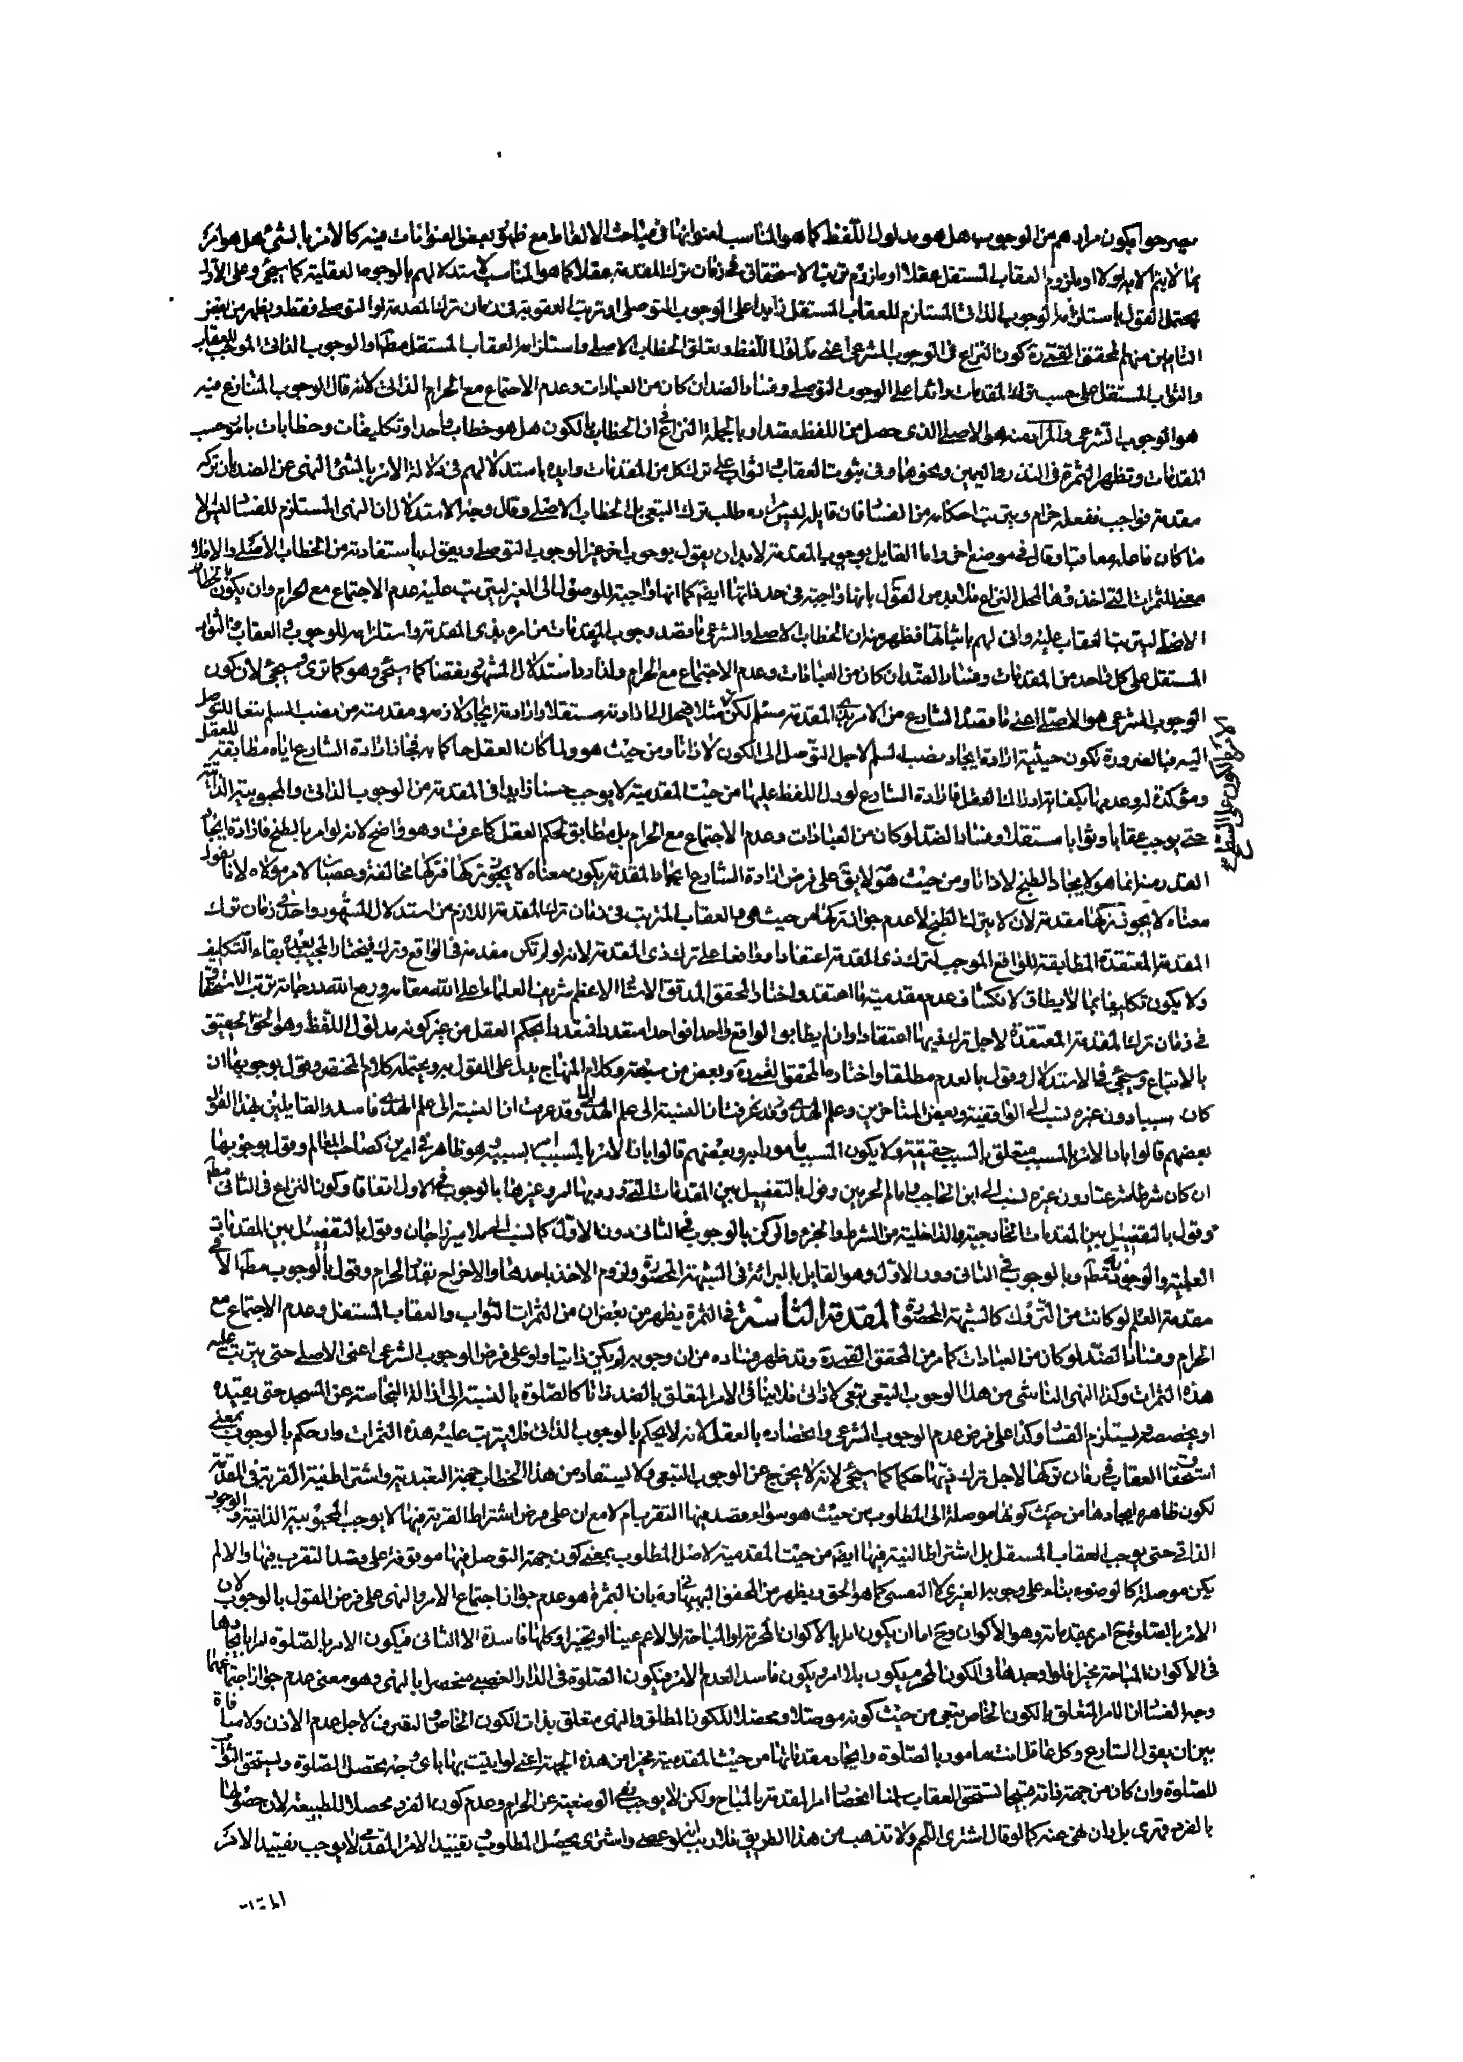 يصرحوا بكون مرادهم من الوجوب هل هو مدلول اللفظ كما هو المناسب لعنوانها في مباحث الالفاظ مع ظهور بعض العنوانات فيه كالامر بالشئ هل هو امر
بما لا يتم الا به اولا او ملزوم العقاب المستقل عقلا او ملزوم ترتب الاستحقاق في زمان ترك المقدمة عقلا كما هو المناسب لاستدلالهم بالوجوه العقلية كما سيجئ وعلى الاول
يحتمل القول باستلزام الوجوب الذاتي المستلزم للعقاب المستقل زايدا على الوجوب التوصلي او ترتب العقوبة في زمان ترك المقدمة او التوصلي فقط ويظهر من بعض
منهم المحقق القمي ره كون النزاع في الوجوب الشرعي اعني مدلول اللفظ وتعلق الخطاب الاصلي واستلزامه العقاب المستقل والوجوب الذاتي الموجب للعقاب
والثواب المستقل على حسب ترك المقدمات زائدا على الوجوب التوصلي وفساد الضد ان كان من العبادات وعدم الاجتماع مع الحرام الذاتي لانه قال الوجوب المتنازع فيه
هو الوجوب الشرعي والمراد منه هو الاصلي الذي حصل من اللفظ قصدا وبالجملة النزاع في ان الخطاب بالكون هل هو خطاب واحد او تكليفات وخطابات بامور حسب
المقدمات وتظهر الثمرة في النذر واليمين ونحوهما وفي ثبوت العقاب والثواب على ترك كل من المقدمات وايده باستدلالهم في دلالة الامر بالشئ النهي عن الضد بان تركه
مقدمة فواجب ففعله حرام ويترتب احكامه من الفساد فان قابله ليس مراده طلب ترك التبعي بل الخطاب الاصلي وقال وجه الاستدلال ان النهي المستلزم للفساد ليس الا
ما كان فاعله معاقبا وقال في موضع اخر واما القايل بوجوب المقدمة لابد ان يقول بوجوب اخر غير الوجوب التوصلي ويقول باستفادته من الخطاب الاصلي والا فلا
معنى للثمرات التي اخذوها لمحل النزاع فلا بد من القول بانها واجبة في حد ذاتها ايضا كما انها واجبة للوصول الى الغير ليترتب عليه عدم الاجتماع مع الحرام وان يكون بالخطاب
الاصلي ليترتب العقاب عليه وانى لهم باثباتها فظهر منه ان الخطاب الاصلي والشرعي ما قصد وجوب المقدمات من امره بذي المقدمة واستلزامه للوجوب والعقاب والثواب
المستقل على كل واحد من المقدمات وفساد الضد ان كان من العبادات وعدم الاجتماع مع الحرام ولذا رد استدلال المشهور بعضنا كما سيجئ وهو كما ترى وسيجئ لان كون
الوجوب الشرعي هو الاصلي اعني ما قصد الشارع من الامر بذي المقدمة مسلم لكن مثلا ينحل الى ارادته مستقلا وارادته ايجاد لازمه ومقدمته من نصب السلم تبعا للتوصل
اليه فبالضرورة تكون حيثية ارادة ايجاد نصب السلم لاجل التوصل الى الكون لا ذاتا ومن حيث هو ولما كان العقل حاكما به فح ارادة الشارع اياه مطابقة للعقل
ومؤكدة له وعدمها بكفاية ادراك العقل فارادة الشارع لو دل اللفظ عليها من حيث المقدمية لا يوجب حسنا زايدا في المقدمة من الوجوب الذاتي والمحبوبية الذاتية
حتى يوجب عقابا وثوابا مستقلا وفساد الضد لو كان من العبادات وعدم الاجتماع مع الحرام بل مطابق لحكم العقل كما عرفت وهو واضح لانه لو امر بالطبخ فارادة ايجاد
القدر منه انما هو لايجاد الطبخ لا ذاتا ومن حيث هو لا يق على فرض ارادة الشارع ايجاد المقدمة يكون معناه لا يجوز تركها فتركها مخالفة وعصيان لامر مولاه لانا نقول
معناه لا يجوز تركها مقدمة لان لا يترك الطبخ لا عدم جواز تركها من حيث هي والعقاب المترتب في زمان ترك المقدمة اللازم من استدلال المشهور واحد في زمان ترك
المقدمة المعتقدة المطابقة للواقع الموجب لترك ذي المقدمة اعتقادا وواقعا على ترك ذي المقدمة لانه لو لم تكن مقدمة في الواقع وترك فيختار المجيب بقاء التكليف
ولا يكون تكليفا بما لا يطاق لانكشاف عدم مقدمية ما اعتقد واختار المحقق المدقق الاستاد الاعظم شريف العلماء اعلى الله مقامه ورفع الله درجاته ترتب الاستحقاق
في زمان ترك المقدمة المعتقدة لاجل ترك ذيها اعتقادا وان لم يطابق الواقع واحدا فواحدا متعددا فتعددا بحكم العقل من غير كونه مدلول اللفظ وهو الحق الحقيق
بالاتباع وسيجئ في الاستدلال وقول بالعدم مطلقا واختاره المحقق القمي ره وبعض من وكلام المنهاج يدل على القول به ويحتمله كلام المختصر وقول بوجوبها ان
كان سببا دون غيره نسب الى الواقفية وبعض المتاخرين وعلم الهدى وقد عرفت ان النسبة الى علم الهدى فاسد والقايلين بهذا القول
بعضهم قالوا بان الامر بالمسبب متعلق بالسبب حقيقة ولا يكون المسبب مأمورا به وبعضهم قالوا بان الامر بالمسبب امر بسببه وهو ظاهر في امرين كصاحب المعالم وقول بوجوبها
ان كان شرطا شرعيا دون غيره نسب الى ابن الحاجب وامام الحرمين وقول بالتفصيل بين المقدمات التي ورد بها امر وغيرها بالوجوب في الاول اتفاقا وكون النزاع في الثاني
وقول بالتفصيل بين المقدمات الخارجية والداخلية من الشرط والجزء والركن بالوجوب في الثاني دون الاول كما نسب الى ملا ميرزا جان وقول بالتفصيل بين المقدمات
العلمية والوجودية وبالوجوب في الثاني دون الاول وهو القايل بالبرائة في الشبهة المحصورة ولزوم الاخذ باحدهما والاخراج بقدر الحرام وقول بالوجوب مطلقا الا في
مقدمة العلم لو كانت من التروك كالشبهة المحصورة المقدمة الثامنة في الثمرة يظهر من بعض ان من الثمرات الثواب والعقاب المستقل وعدم الاجتماع مع
الحرام وفساد الضد لو كان من العبادات كما مر من المحقق القمي ره وقد ظهر فساده من ان وجوبه لو لم يكن ذاتيا ولو على فرض الوجوب الشرعي اعني الاصلي حتى يترتب عليه
هذه الثمرات وكذا النهي الناشي من هذا الوجوب التبعي تبعي لا ذاتي فلا ينافي الامر المتعلق بالضد ذاتا كالصلوة بالنسبة الى ازالة النجاسة عن المسجد حتى يقيده
او يخصصه ليستلزم الفساد وكذا على فرض عدم الوجوب الشرعي وانحصاره بالعقل لانه لا يحكم بالوجوب الذاتي فلا يترتب عليه هذه الثمرات وان حكم بالوجوب بمعنى
استحقاق العقاب في زمان تركها لاجل ترك ذيها حكما كما سيجئ لانه لا يخرج عن الوجوب التبعي ولا يستفاد من هذا الخطاب جهة التعبدية واشتراط نية القربة في المقدمة
لكون ظاهره ايجادها من حيث كونها موصلة الى المطلوب من حيث هو سواء قصد فيها التقرب ام لا مع ان على فرض اشتراط القربة فيها لا يوجب المحبوبية الذاتية والوجوب
الذاتي حتى يوجب العقاب المستقل بل اشتراط النية فيها ايضا من حيث المقدمية لاصل المطلوب بمعنى كون جهة التوصل فيها موقوفة على قصد التقرب فيها والا لم
يكن موصلة كالوضوء بناء على وجوبه الغيري لا النفسي كما هو الحق ويظهر من المحقق البهبهاني ره بان الثمرة هو عدم جواز اجتماع الامر والنهي على فرض القول بالوجوب لان
الامر بالصلوة ح امر بمقدماته وهو الاكوان وح اما ان يكون امر بالاكوان المحرمة او المباحة او الاعم عينا او تخييرا وكلها فاسدة الا الثاني فيكون الامر بالصلوة امرا بايجادها
في الاكوان المباحة مخيرا فلو اوجدها في الكون المحرم يكون بلا امر ويكون فاسدا لعدم الامر فيكون الصلوة في الدار الغصبي منحصرا بالنهي وهو معنى عدم جواز اجتماعهما
وجه الفساد ان الامر المتعلق بالكون الخاص تبعي من حيث كونه موصلا ومحصلا للكون المطلق والنهي متعلق بذات الكون الخاص والتصرف لاجل عدم الاذن ولا منافاة
بين ان يقول الشارع وكلما قل انت مامور بالصلوة وايجاد مقدماتها من حيث المقدمية مخيرا من هذه الجهة اعني لو اتيت بها باي وجه يحصل الصلوة وتستحق الثواب
للصلوة وان كان من جهة ذاته قبيحا تستحق العقاب سلمنا انحصار امر المقدمة بالمباح ولكن لا يوجب نفي الوضعية عن الحرام وعدم كون الفرد محصلا للطبيعة لان حصولها
بالفرد قهري بل وان نهي عنه كما لو قال اشتر اللحم ولا تذهب من هذا الطريق فلا ريب انه لو عصى واشترى يحصل المطلوب تقييد الامر المقدمي لا يوجب تقييد الامر